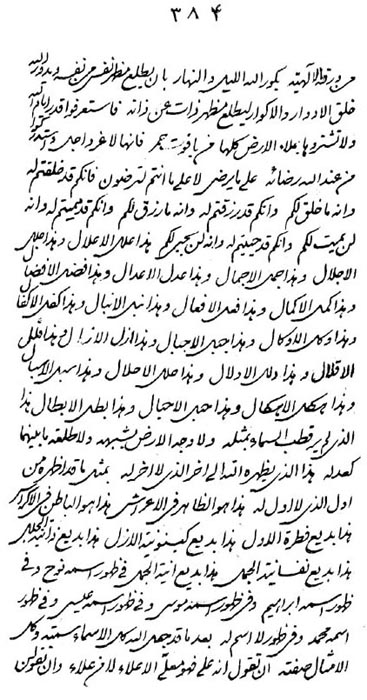 ٣٨٤
من ورقة الالهية يكور الله الليل و النهار بان يطلع مظهر نفس من نفسه و يدور الله
خلق الادوار و الاكوار ليطلع مظهر ذات عن ذاته فاستعرفوا قدر ايام الله
ولا تشتروها بملاء الارض كلها من ياقوت حمر فانها لاعز واجل
من عند الله رضائه على ما يرضى لا على ما انتم لترضون فانكم قد خلقتم له
وانه ما خلق لكم وانكم قد رزقتم له وانه ما رزق لكم وانكم قد تميتم له وانه
لن يميت لكم وانكم قد حييتم له وانه لن يحيى لكم هذا علل الاعلال وهذا جلل
الاجلال وهذا جمل الاجمال وهذا عدل الاعدال وهذا فضل الافضال
وهذا كمل الاكمال وهذا فعل الافعال وهذا نبل الانبال وهذا كفل الاكفال
وهذا وكل الاوكال وهذا جبل الاجبال وهذا نزل الانزال وهذا قلل
الاقلال وهذا دلل الادلال وهذا حلل الاحلال وهذا سبل الاسبال
وهذا الاحبال وهذا بطل الابطال هذا
الذى لم ير قطب السماء بمثله ولا وجه الارض بشبهه ولا طلعة ما بينهما
كعدله هذا الذى يظهره الله الى اخر الذى لا اخر له بمثل ما قد اظهره من
اول الذى لا اول له هذا هو الظاهر فى الاعراش هذا هو الباطن فى الاكراس
هذا بديع فطرة الاول هذا بديع كينونية الازل هذا بديع ذاتية
هذا بديع نفسانية الجمل هذا بديع انية الجمل فى ظهور اسمه نوح و فى
ظهور اسمه ابراهيم و فى ظهور اسمه موسى و فى ظهور اسمه عيسى و فى ظهور
اسمه محمد و فى ظهور لا اسم له بعد ما قد جعل الله كل الاسماء اسمه وكل
الامثال صفته ان تقول انه على فهو معلى الاعلاء لا من علاء وان تقولن